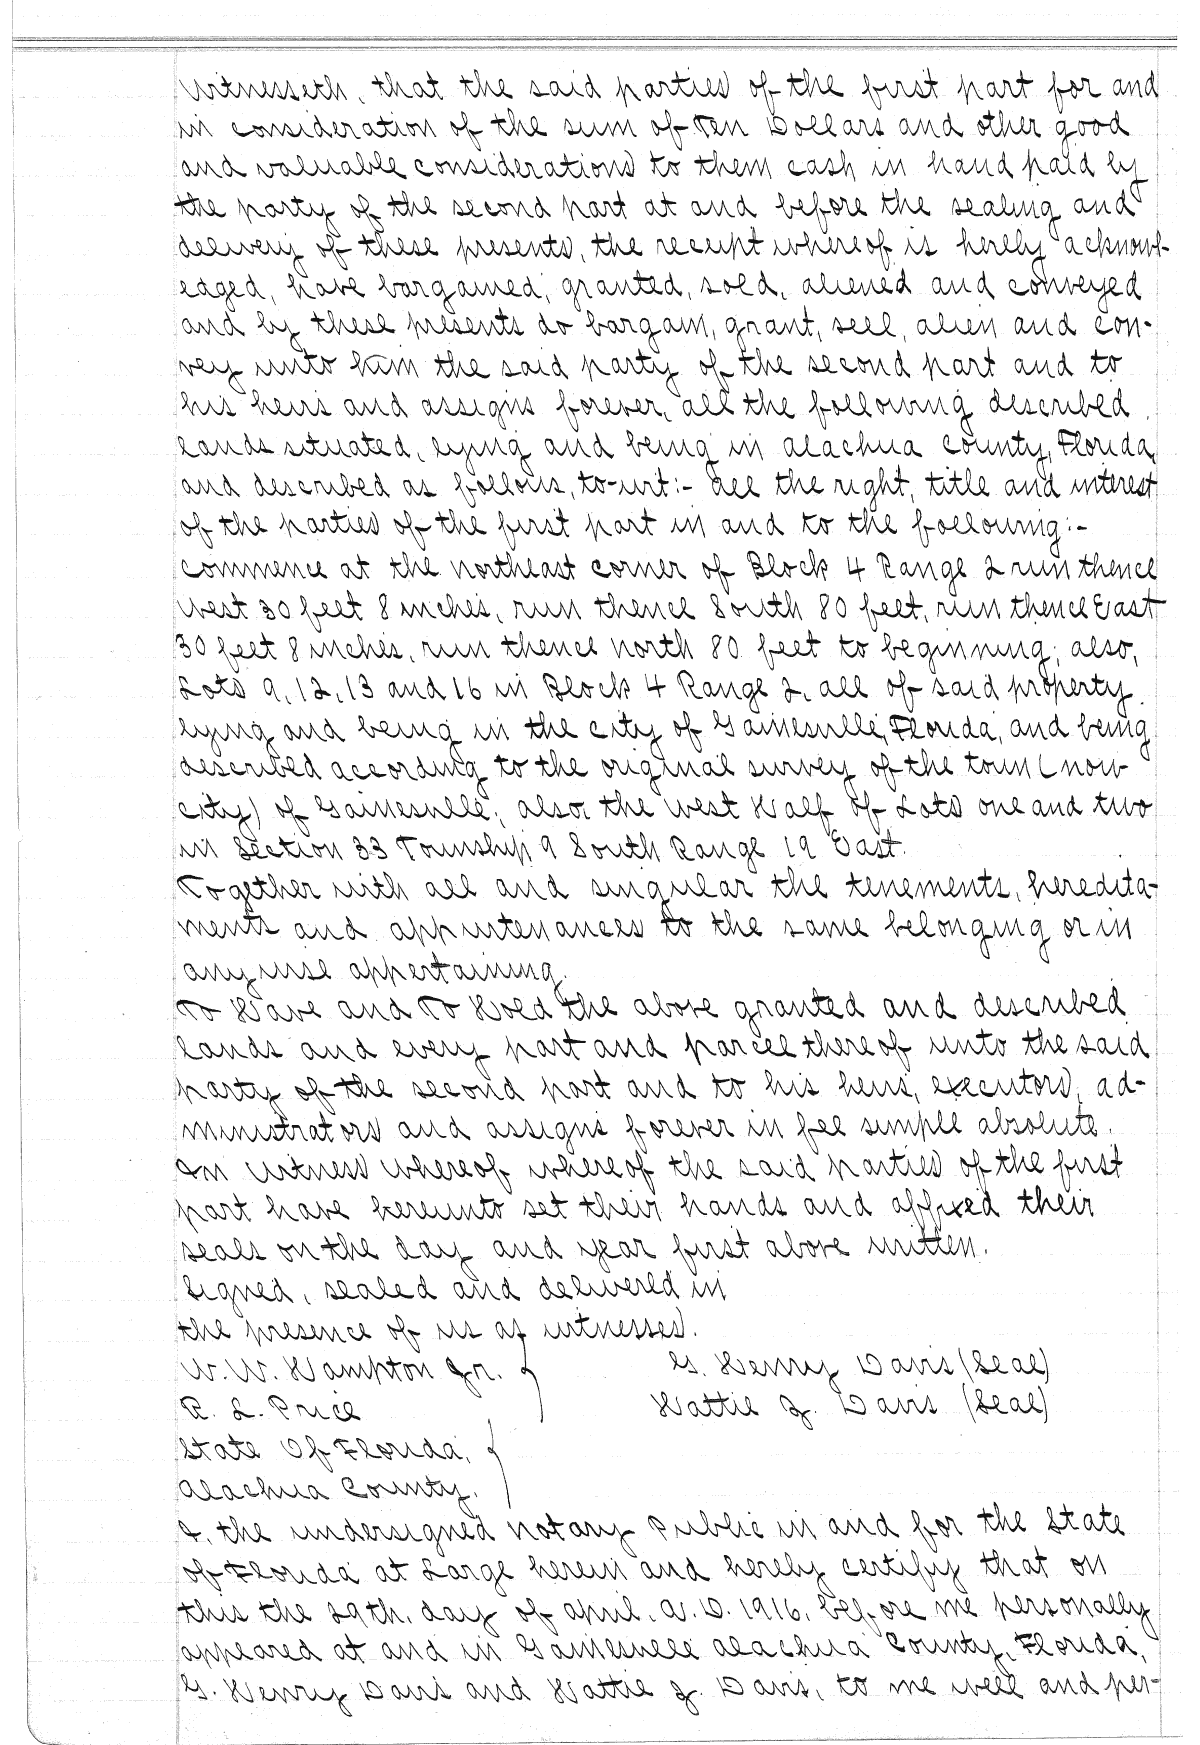 Witnesseth, that the said parties of the first part for and
in consideration of the sum of Ten Dollars and other good
and valuable considerations to them cash in hand paid by
the party of the second part at and before the sealing and
delivery of these presents, the receipt whereof is hereby acknowl-
edged, have bargained, granted, sold, aliened and conveyed
and by these presents do bargain, grant, sell, alien and con-
vey unto him the said party of the second part and to
his heirs and assigns forever, all the following described
lands situated, lying and being in Alachua County, Florida,
and described as follows, to-wit:- All the right, title and interest
of the parties of the first part in and to the following:-
Commence at the northeast corner of Block 4 Range 2 run thence
West 30 feet 8 inches, run thence South 80 feet, run thence East
30 feet 8 inches, run thence north 80 feet to beginning; also,
Lots 9, 12, 13 and 16 in Block 4 Range 2, all of said property
lying and being in the city of Gainesville, Florida, and being
described according to the original survey of the town (now
city) of Gainesville; also the West Half of Lots one and two
in Section 33 Township 9 South Range 19 East.
Together with all and singular the tenements, heredita-
ments and appurtenances to the same belonging or in
anywise appertaining.
To Have and To Hold the above granted and described
lands and every part and parcel thereof unto the said
party of the second part and to his heirs, executors, ad-
ministrators and assigns forever in fee simple absolute.
In Witness whereof whereof the said parties of the first
part have hereunto set their hands and affixed their
seals on the day and year first above written.
Signed, sealed and delivered in
the presence of us as witnesses.
W. W. Hampton Jr. } G. Henry Davis (Seal)
R. L. Price Hattie J. Davis (Seal)
State Of Florida, }
Alachua County.
I, the undersigned notary Public in and for the State
of Florida at Large herein and hereby certify that on
this the 29th. day of April, A. D. 1916, before me personally
appeared at and in Gainesville Alachua County, Florida,
G. Henry Davis and Hattie J. Davis, to me well and per-